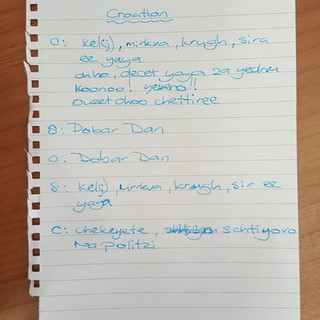 Croation
O: ke(j), mirkva, krugh, sira
ee yaya
onho, decet yaya za yednu
koonoo! yebeno!!
ouzet choo chettiree
B: Dobar Dan
O: Dobar Dan
S: ke(j), mrkva, krough, sir ee
yaya
C: chekeyete, schtiyovo
Na politzi